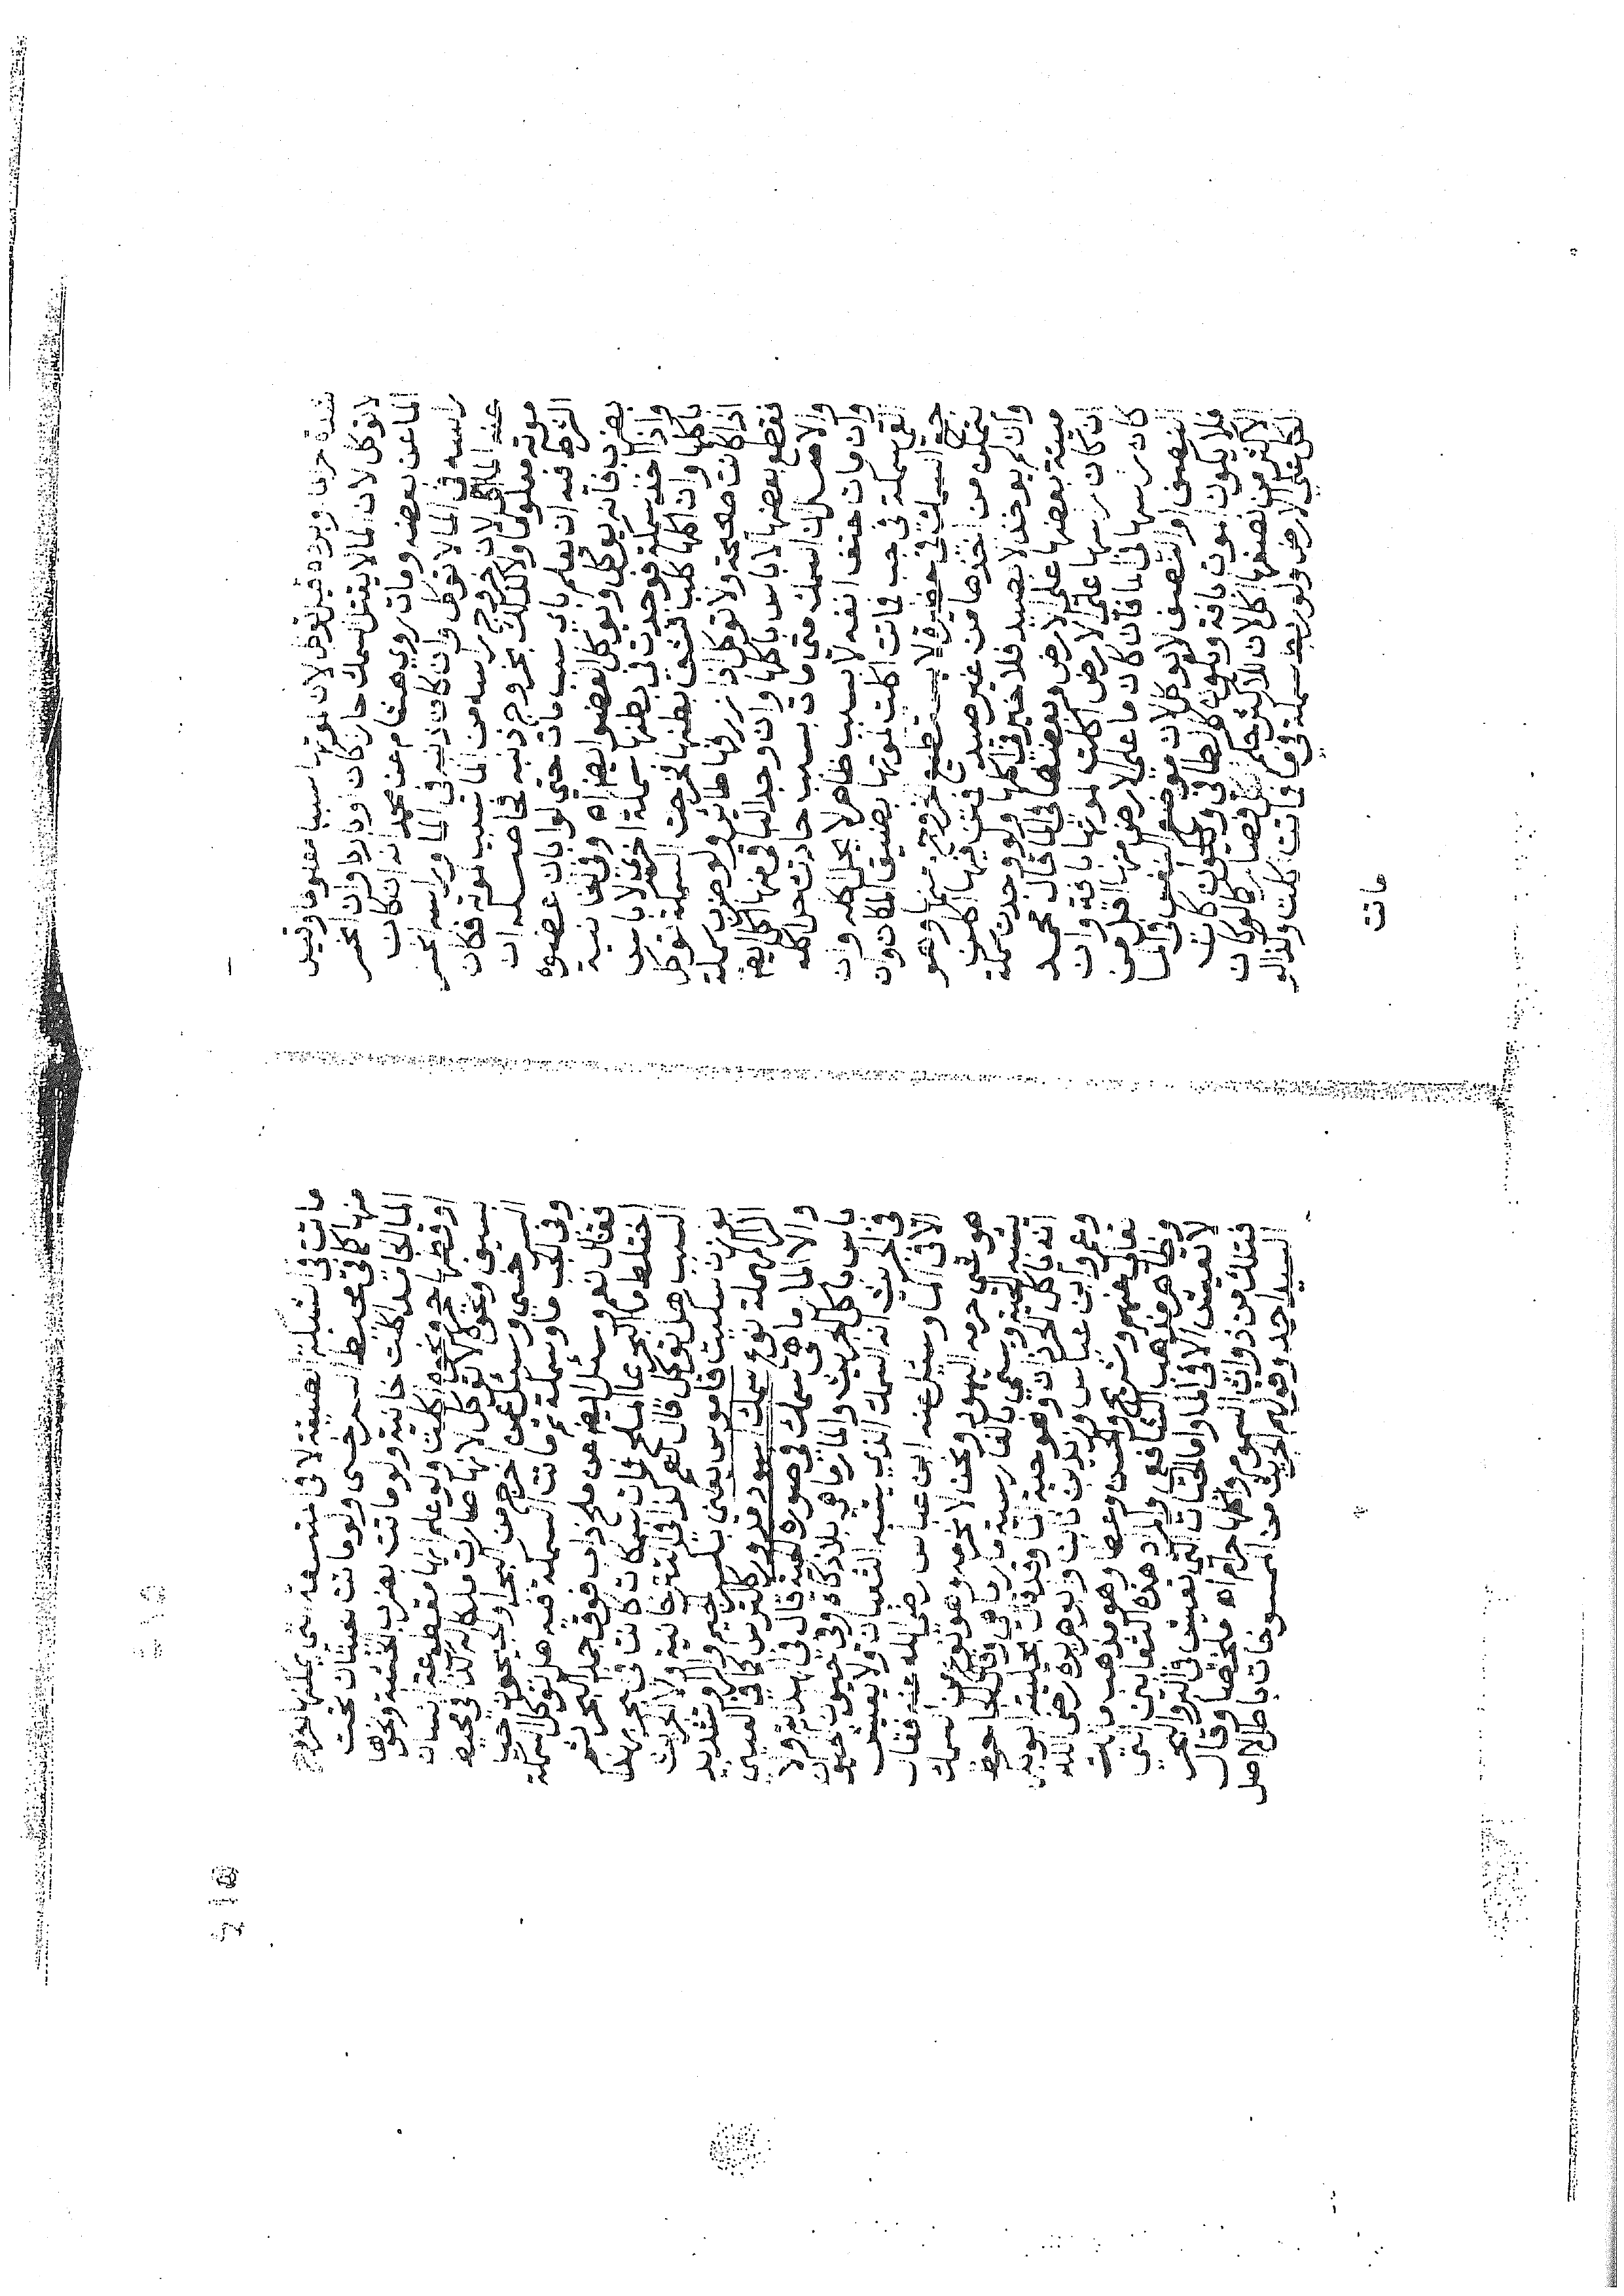 شدة حرما وبرده قيل توكل لان لموتها سببا معلوما وقيل
لا توكل لان الما لا يقتل السمك حارا كان او باردا وان انحسر
الما عن بعضه ومات روي هشام عن محمد انه ان كان
راسه في الما لا توكل وان كان ذنبه في الما وراسه انحسر
عنه الما اكل لان خروج راسه من الما سبب لموته فكان
موته معلوما ولا كذلك بخروج ذنبه فحاصله ان
الشرط فيه ان يعلم باي سبب مات حتي لو ابان عضوه
بضرب فانه يوكل ويوكل العضو ايضا اه وفي الخانية
واذا اخذ سمكة فوجدت في بطنها سمكة اخري لا باس
باكلها وان اكلها كلب فشق بطنها فخرجت السمكة توكل
اذا كانت صحيحة ولا توكل اذا زرقها طائر ولو ضرب سمكة
فقطع بعضها لا باس باكلها وان وجد الباقي منها اكل ايضا
والاصل ان السمك متي مات بسبب حادث حل اكله
وان مات حتف انفه لا بسبب ظاهر لا يحل اكله وان
القي سمكة في جب فماتت اكلت لموتها بضيق المكان وان
جمع السمك في حظيرة لا يستطيع الخروج منها وهو
يتمكن من اخذها من غير صيد فمتن فيها اكلن
وان لم يوخذ الا بصيد فلا خير في اكلها ولو وجدت سمكة
ميتة بعضها علي الارض وبعضها في الما قال محمد
ان كان راسها علي الارض اكلت لموتها بافة وان
كان راسها في الما فان كان ما علي الارض منها اقل من
النصف او النصف لا يوكل لان موضع النفس في الما
فلا يكون الموت بافة ويكون كالطافي وان كان
الاكثر من نصفها اكل لان للاكثر حكم الكل فصار كما لو كان
الكل علي الارض ولو ربط سمكة في ما فماتت اكلت وكذا لو
ماتت
ماتت في الشبكة الضيقة لا في متسعة يمكنها الخروج
منها كما في محيط السرخسي ولو ماتت تحت
الما الجامد اكلت خانية ولو ماتت بضرب الخشبة ونحوها
او حجر ونحوه اكلت ولو علم انها مقطوعة انسان
بسيف ونحوه لا توكل لانها صارت ملكا له كذا في محيط
السرخسي وسئل عمن اخرج من البحر او جيحون حبا
وفي الحب ماء وسمكة ثم ماتت السمكة فيه هل توكل السمكة
فقال نعم وسئل ايضا عن ملح ذاب فوق جمد البحر ثم
اختلط ما البحر بما الملح فمات سمكات كانت في البحر بهذا
السبب هل توكل قال نعم كذا في التاتارخانية والجريث
بوزن سكيت قاموس يعني بكسر الجيم والرا وتشديد
الرا المهملة نوع سمك اسود مدور كالترس كما في العيني
والا المارماهي سمك في صورة الحية قال في الهداية ولا
باس باكل الجريث والمارماهي بلا ذكاة وفي حيوة الحيوان
في الجريث انه السمك الذي يشبه الثعبان ولا يعيش
الا في الما وسئل عنه ابن عباس رضي الله عنه فقال
هو شي حرمه اليهود ونحن لا نحرمه وهو نوع من السمك
يشبه الحية ويسمي بالفارسية مارماهي وقال الجاحظ
انه ياكل الجرذان وهو حية الما تحليله ابو بكر
وعمر وابن عباس وزيد بن ثابت وابو هريرة رضي الله
تعالي عنهم وشريح والحسن وعطا وهو مذهب مالك
وظاهر مذهب الشافعي والمراد هذه الثعابين التي
لا تعيش الا في الما واما الحيات التي تعيش في البر والبحر
فتلك من ذوات السموم واكلها حرام اه ملخصا وقال
السيد احمد وقولهم الجريث من الممسوخات باطل لا اصل